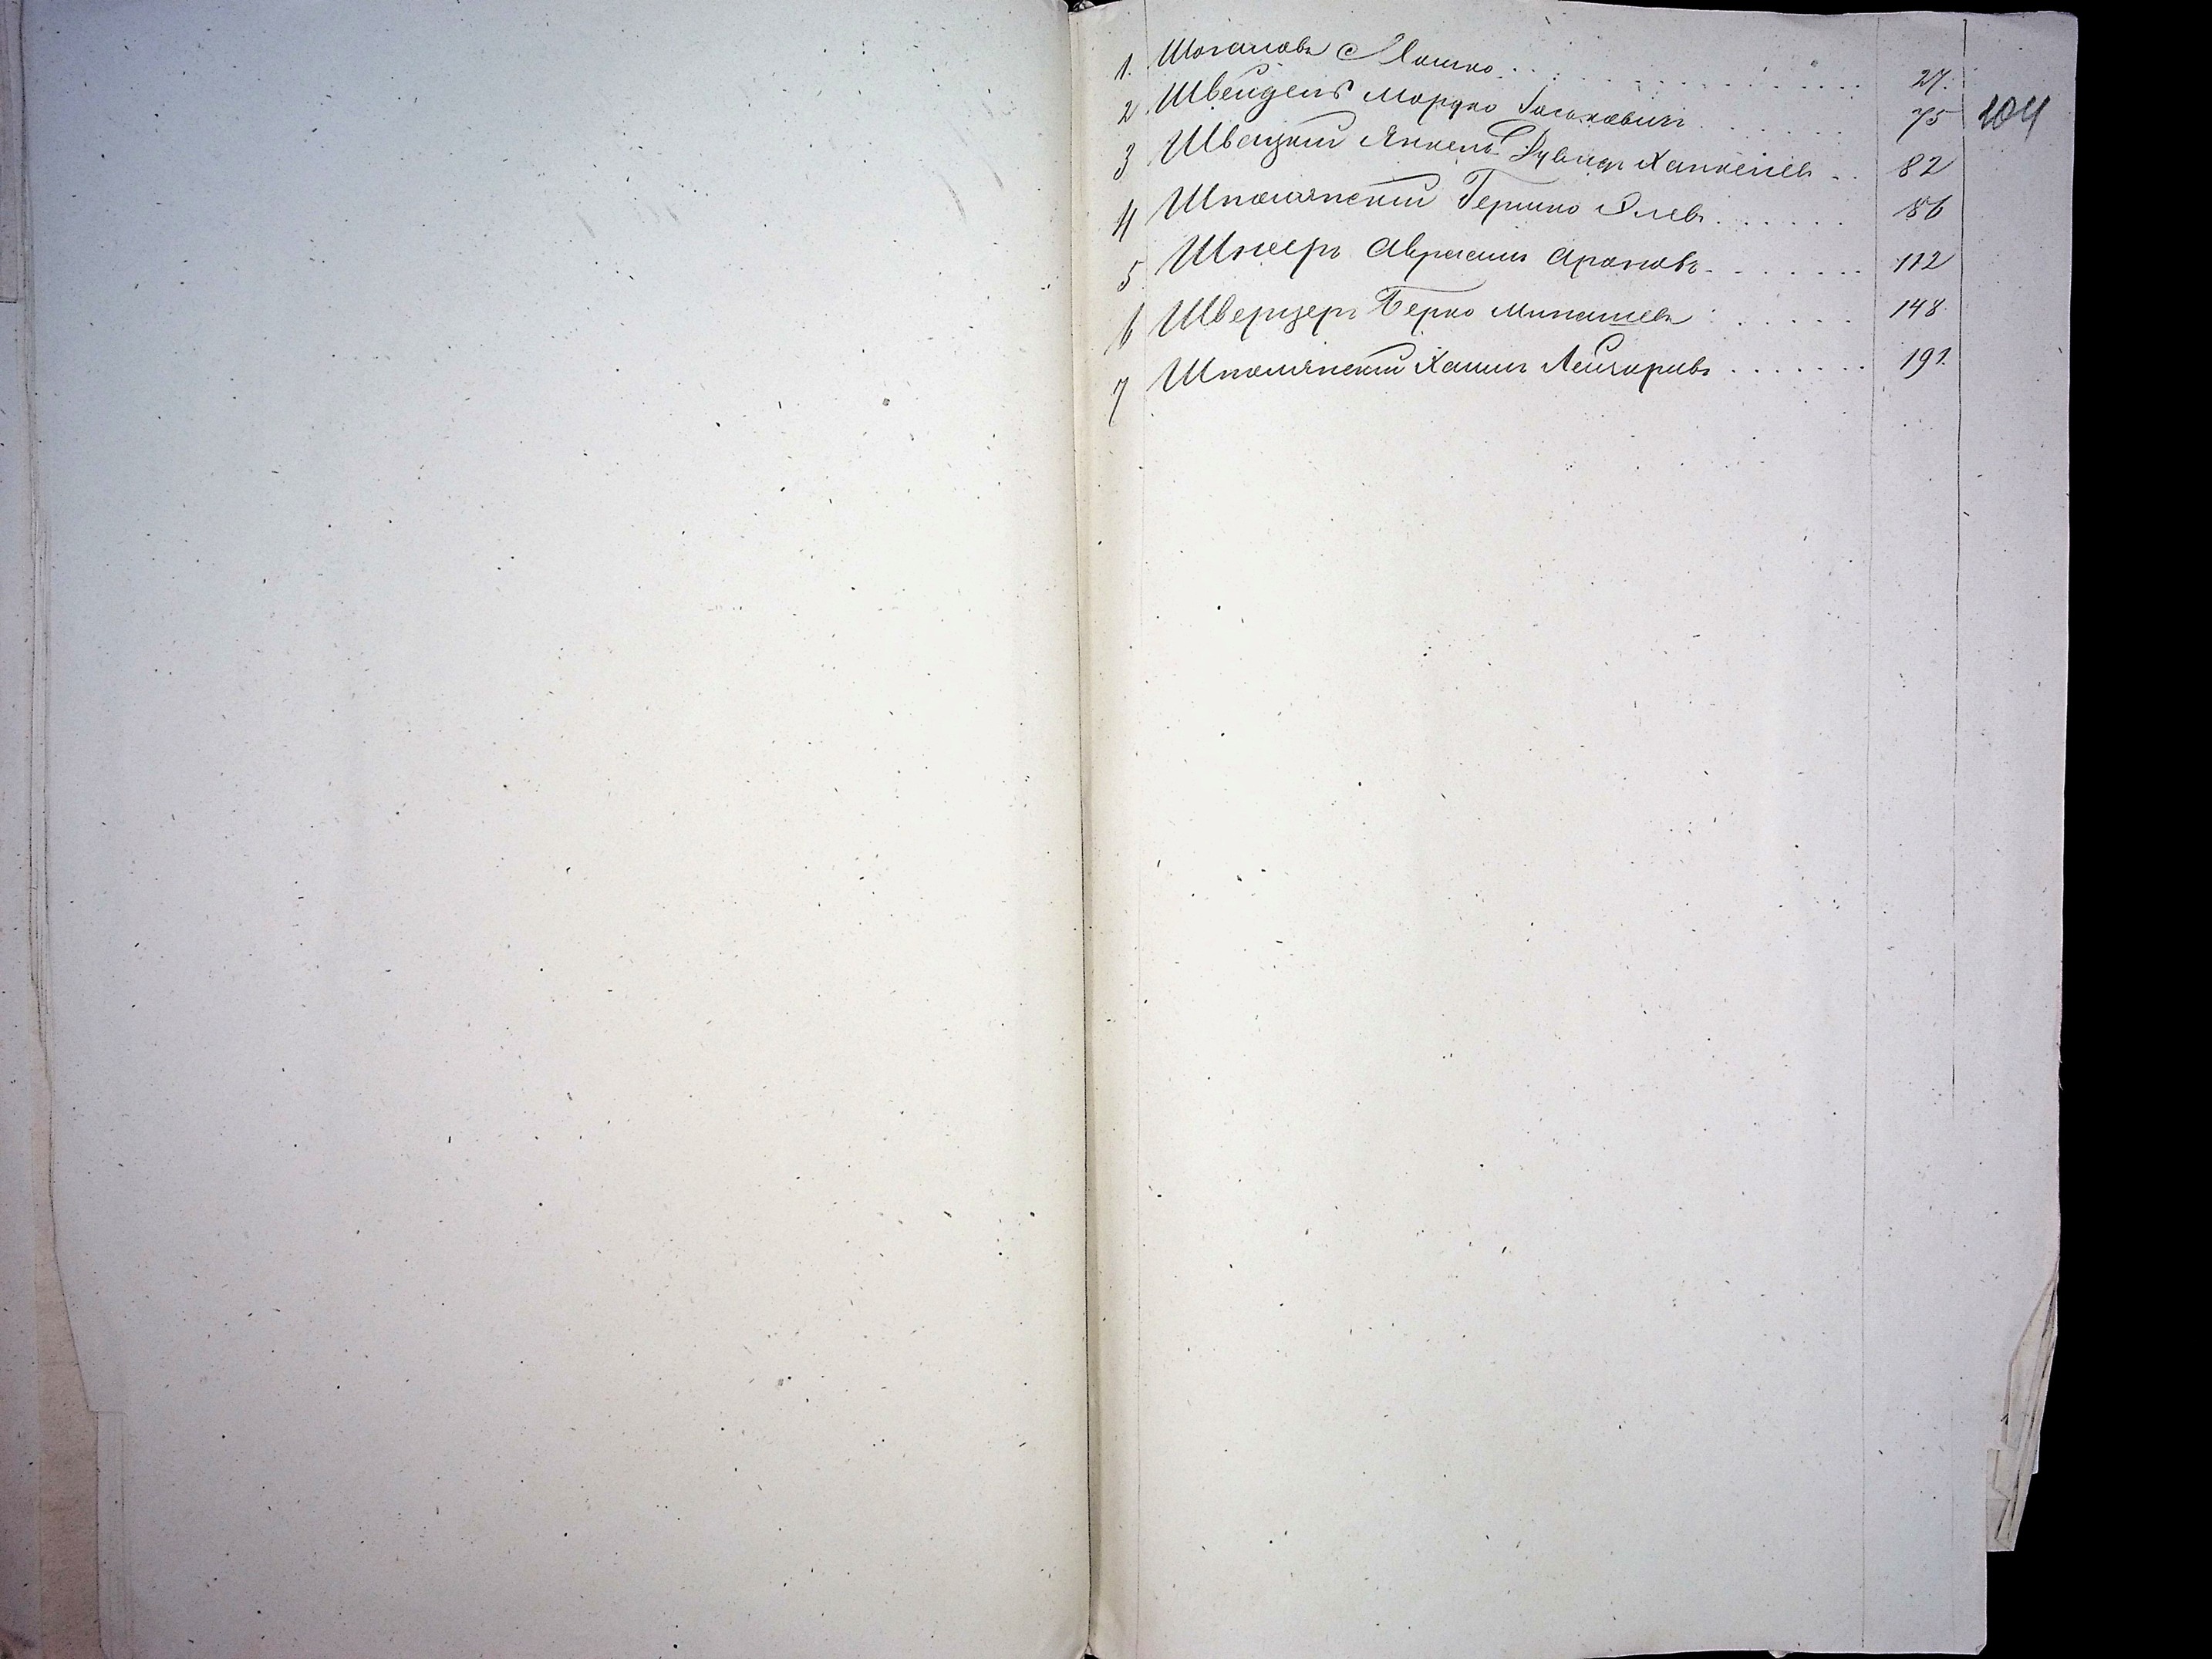 1. Шогамовъ Мошко 27.
2. Швейдель Мордко Іоськовичъ 75
104
3 Швецкій Янкель Дувидъ Хаскелевъ 82
4 Шполянскій Гершко Элевъ 86
5 Шнееръ Авраамъ Ароновъ 112
6 Шверцеръ Берко Минашевъ 148.
7 Шполянскій Хаимъ Лейзоровъ 191.